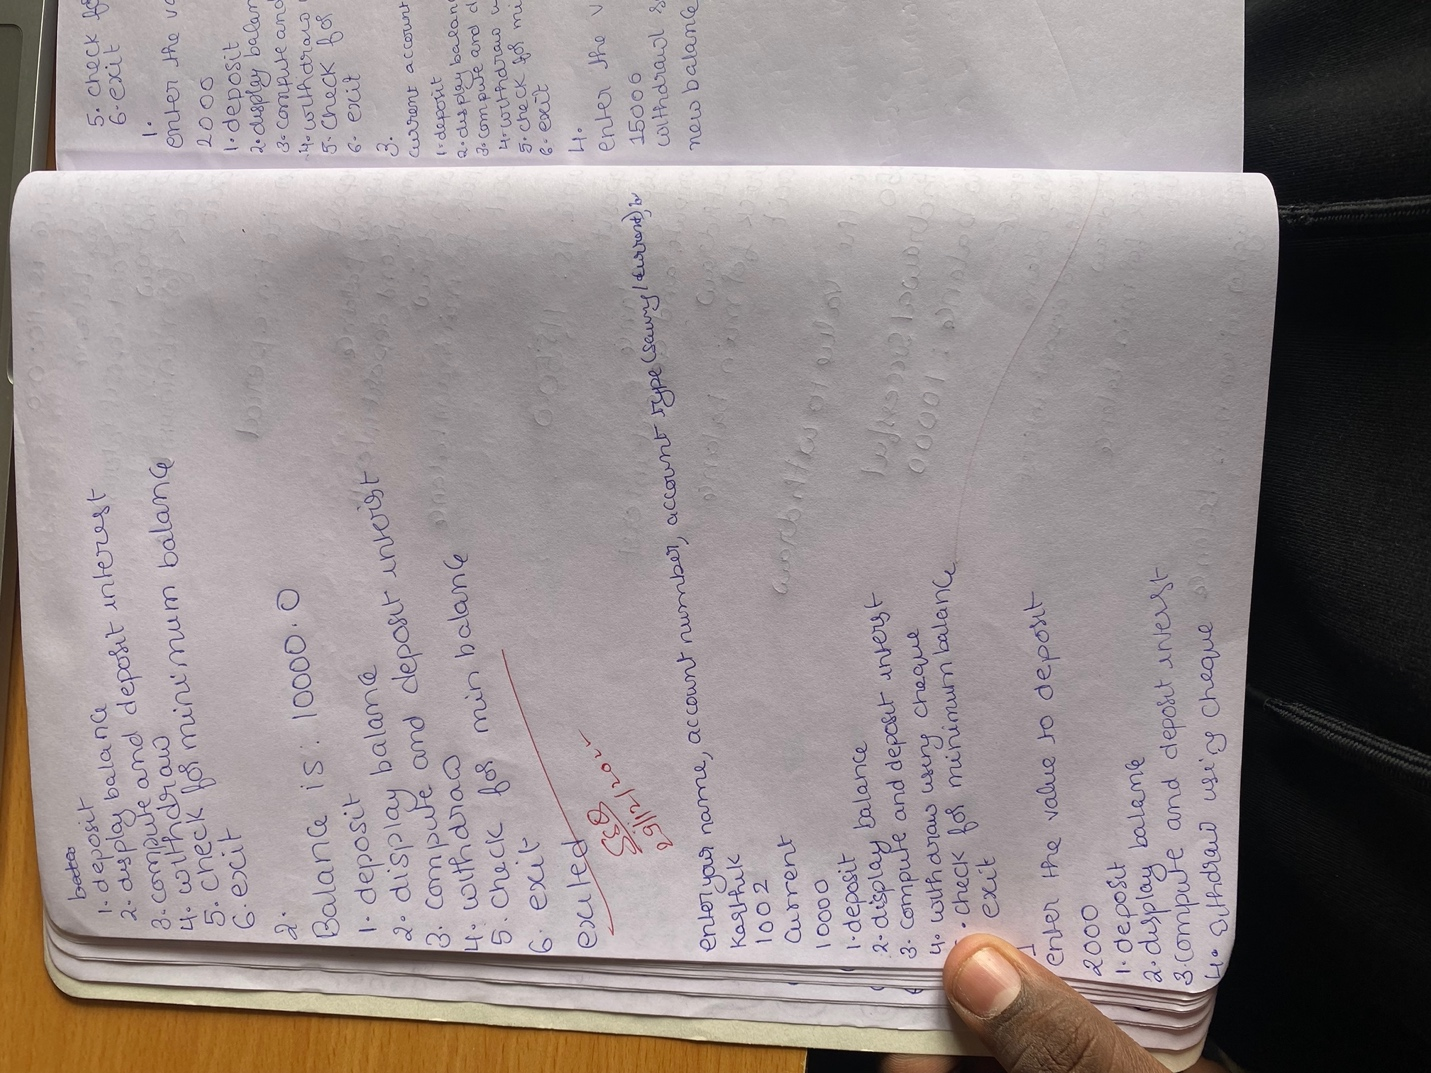 1. deposit
2. display balance
3. compute and deposit interest
4. withdraw
5. check for minimum balance
6. exit
2.
Balance is: 10000.0
1. deposit
2. display balance
3. compute and deposit interist
4. withdraw
5. check for min balance
6. exit
exited
29/12/2022
enter your name, account number, account type (saving/current),
Karthik
102
Current
10000
1. deposit
2. display balance
3. compute and deposit interst
4. withdraw using cheque
. check for minimum balance
exit
1
enter the value to deposit
2000
1. deposit
2. display balance
3. compute and deposit interest
4. withdraw using cheque
5. check fo
6. exit
1.
enter the va
2000
1. deposit
2. display balan
3. compute and
4. withdraw
5. check for
6. exit
3.
current account
1. deposit
2. display balanc
3. compute and d
4. withdraw w
5. check for mi
6. exit
4.
enter the v
15000
withdrawl s
new balance